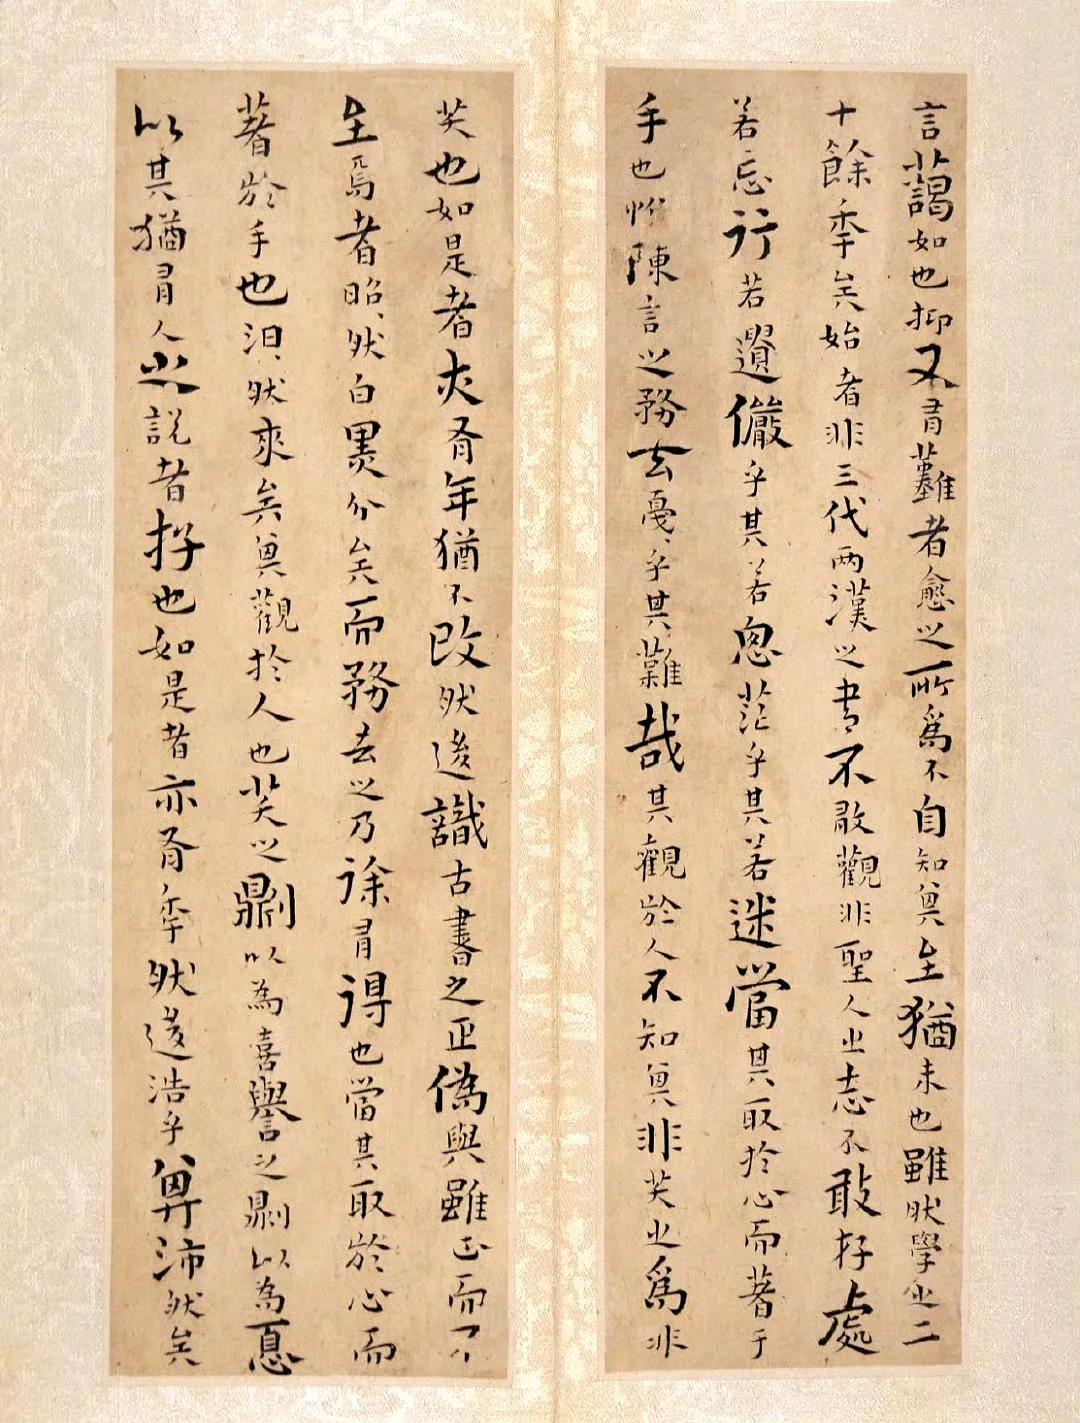 言藹如也抑又有難者愈之所爲不自知其至猶未也雖然學之二
十餘年矣始者非三代兩漢之書不敢觀非聖人之志不敢存處
若忘行若遺儼乎其若思茫乎其若迷當其取於心而著于
手也惟陳言之務去戛、乎其難哉其觀於人不知其非笑之爲非
笑也如是者亦有年猶不改然後識古書之正偽與雖正而不
至焉者昭、然白黑分矣而務去之乃徐有得也當其取於心而
著於手也汩、然來矣其觀於人也笑之則以為喜譽之則以為憂
以其猶有人之說者存也如是者亦有年然後浩乎其沛然矣